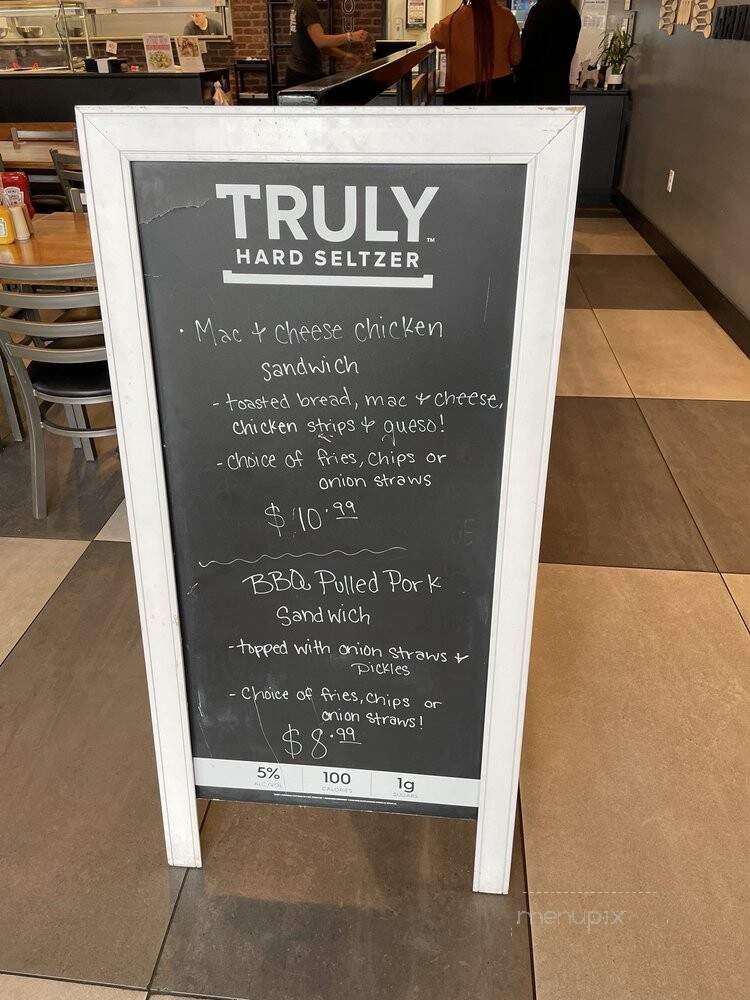 TRULY™
HARD SELTZER
• Mac & cheese chicken
sandwich
- toasted bread, mac & cheese,
chicken strips & queso!
- choice of fries, chips or
onion straws
$10.99
BBQ Pulled Pork
Sandwich
- topped with onion straws &
Pickles
- choice of fries, chips or
onion straws!
$8.99
5% 100 1g
ALC/VOL CALORIES SUGARS
menupix